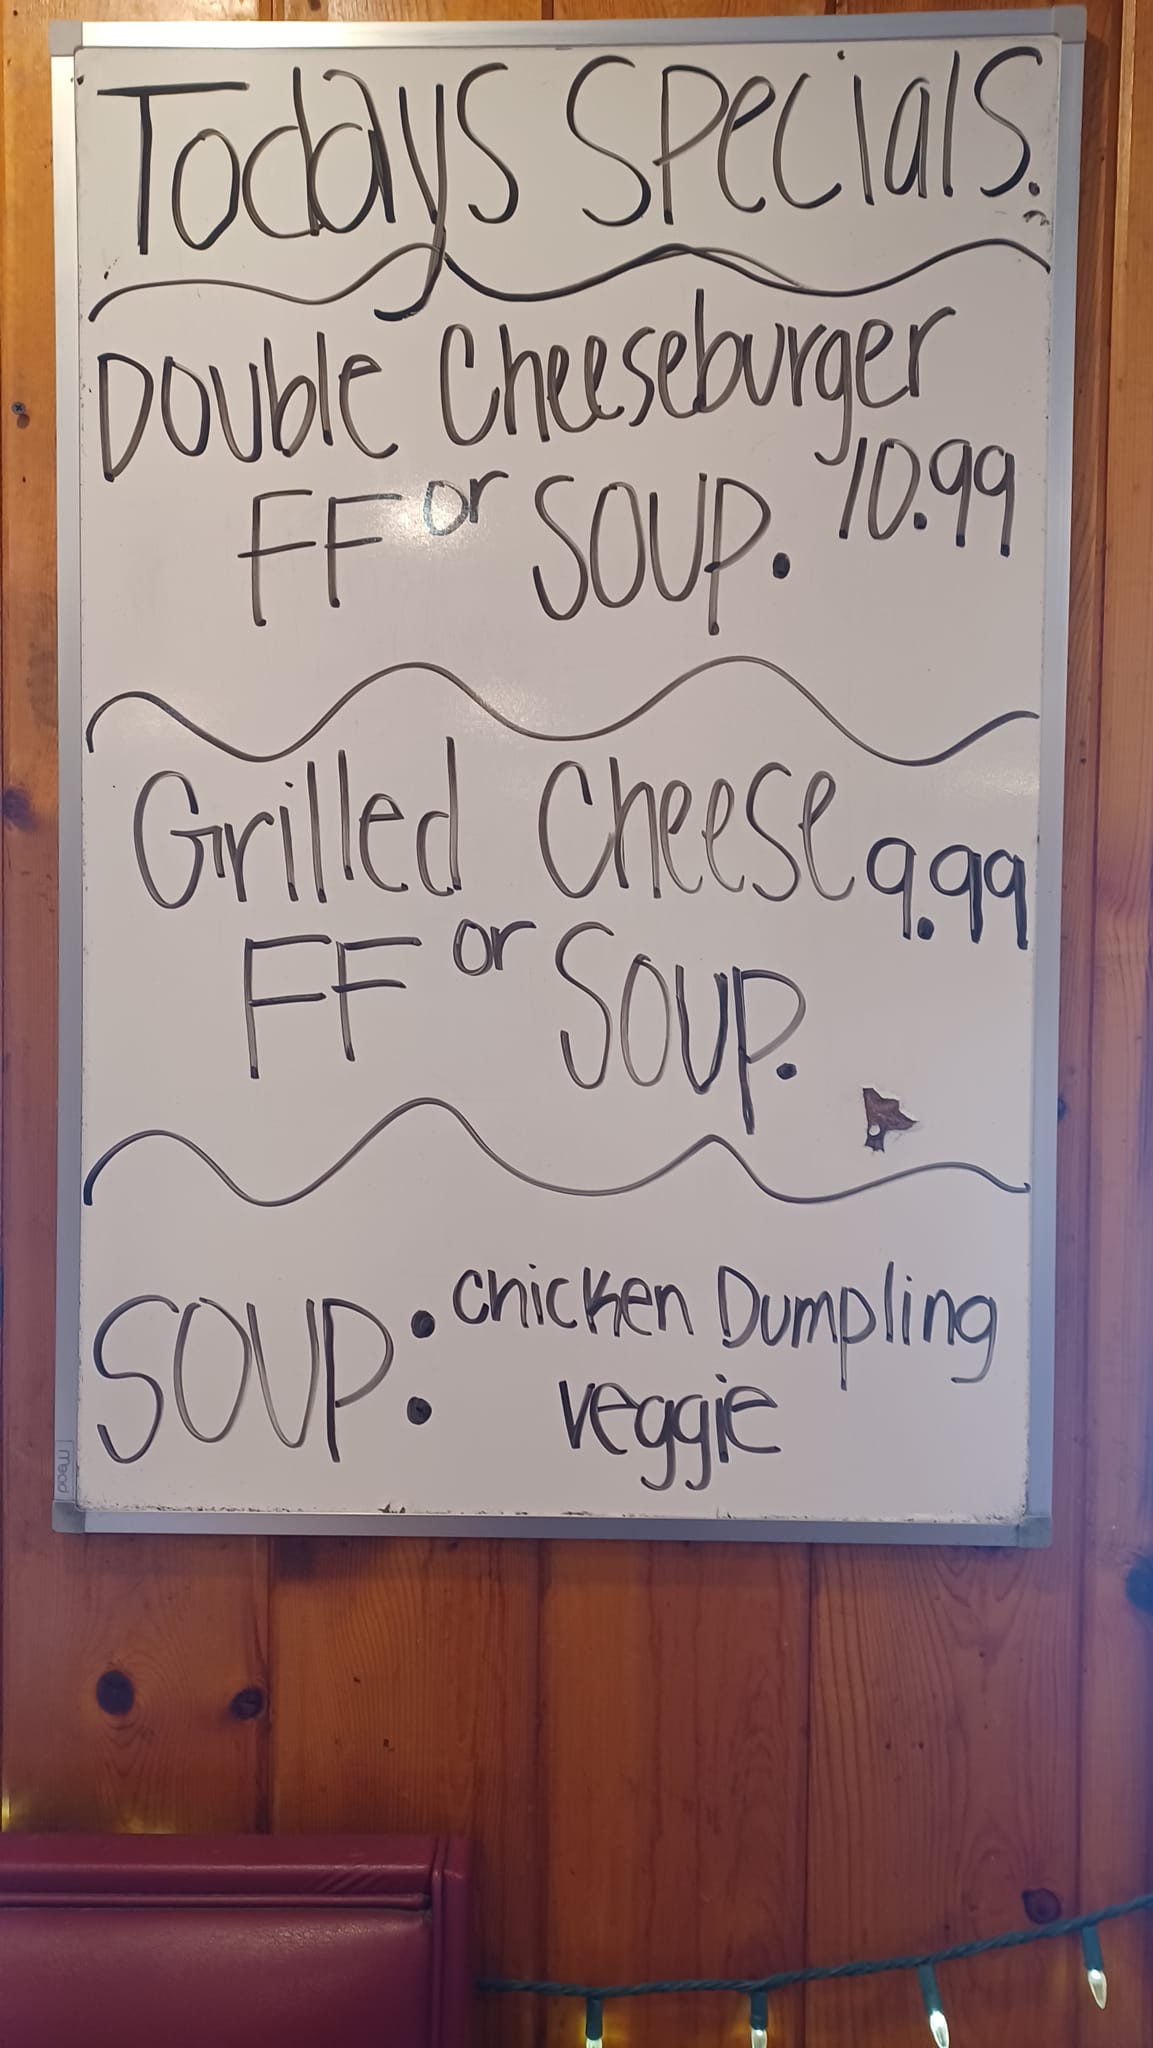 Todays Specials.
Double Cheeseburger
FF or SOUP. 10.99
Grilled Cheese 9.99
FF or SOUP.
SOUP: chicken Dumpling
veggie
Mead